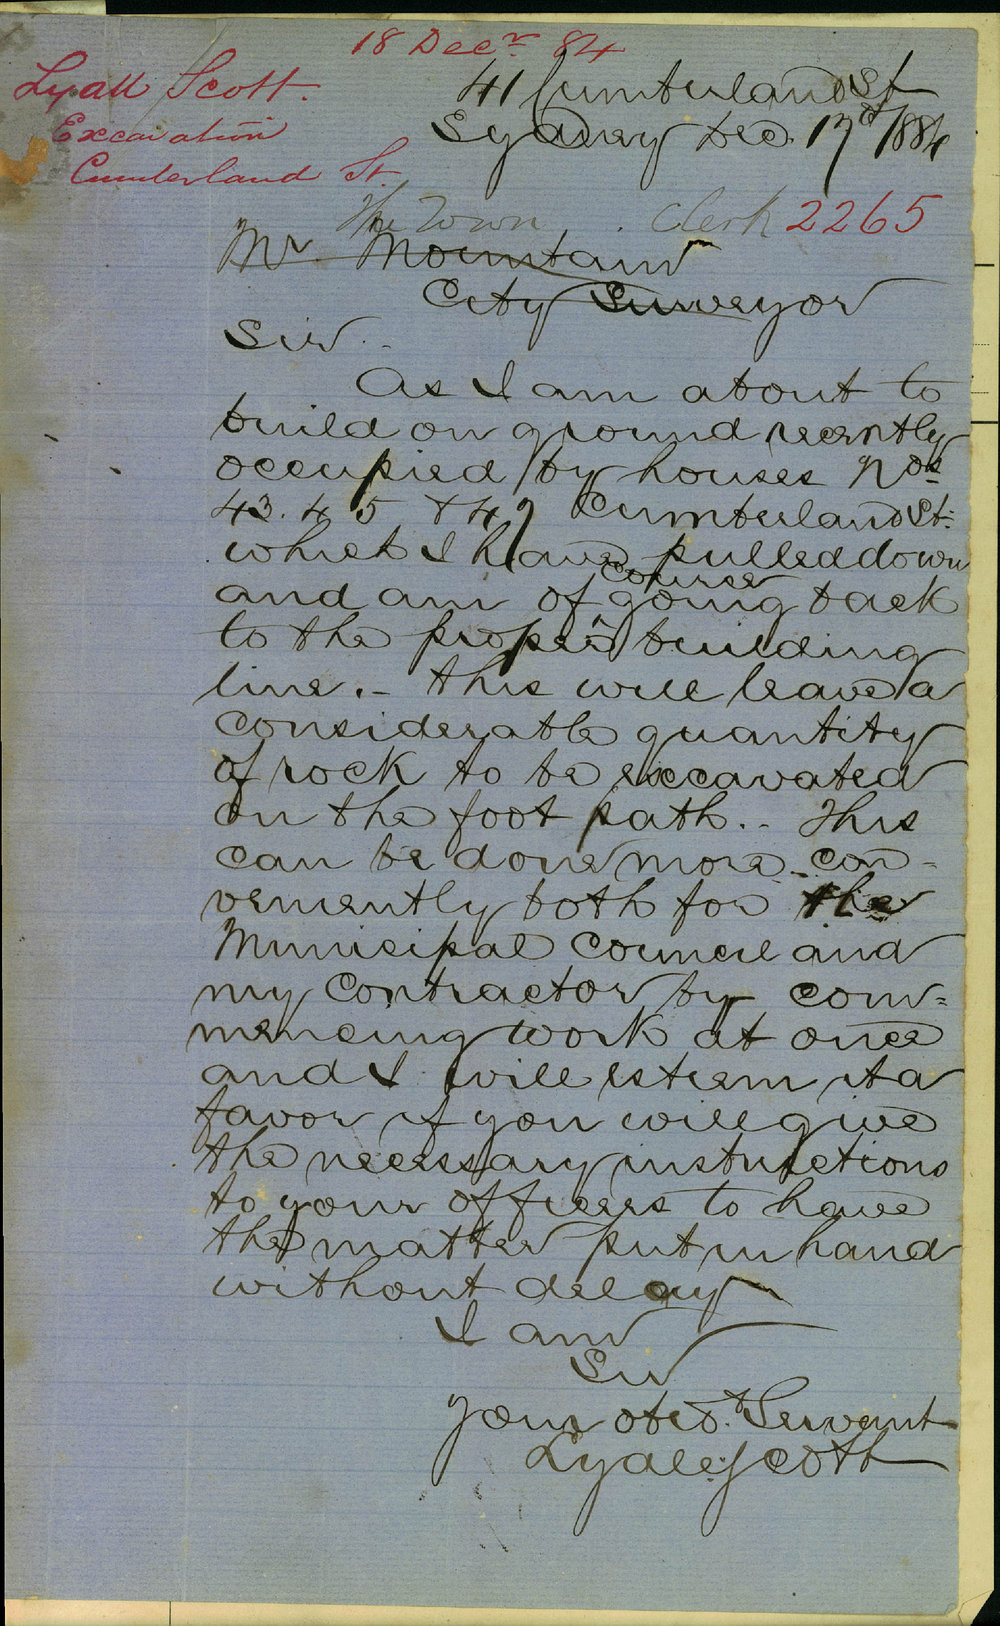 18 Decr 84
Lyall Scott.
Excavation
Cumberland St.
41 Cumberland St
Sydney Dec. 17th 1884
The Town Clerk 2265
Mr. Mountain
City Surveyor
Sir.
As I am about to
build on ground recently
occupied by houses Nos
43. 45 & 47 Cumberland St.
which I have pulled down
and am of course going back
to the proper building
line. - this will leave a
considerable quantity
of rock to be excavated
on the foot path. - This
can be done more con-
veniently both for the
Municipal Council and
my Contractor by com=
mencing work at once
and I will esteem it a
favor if you will give
the necessary instructions
to your officers to have
the matter put in hand
without delay
I am
Sir
Your obed.t Servant
Lyall Scott